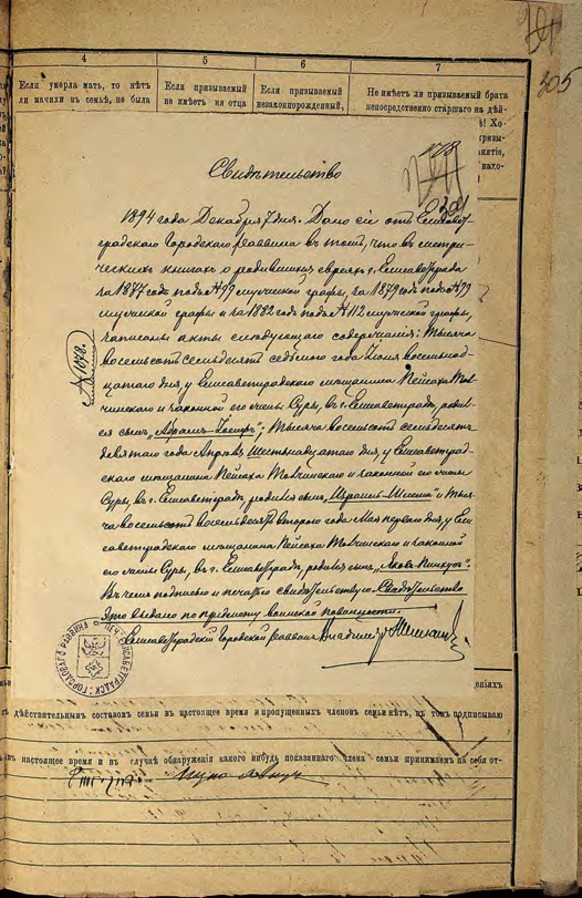 305
4
5
6
7
Если умерла мать, то нѣтъ
ли мачихи въ семьѣ, не была
Если призываемый
не имѣетъ ни отца
Если призываемый
незаконнорожденный,
Не имѣетъ ли призываемый брата
непосредственно старшаго на дѣй-
Свидѣтельство
1894 года Декабря 7 дня. Дано сіе отъ Елисавет-
градскаго Городскаго Раввина въ томъ, что въ метри-
ческихъ книгахъ о родившихся евреяхъ г. Елисаветграда
за 1877 годъ подъ № 99 мужческой графы, за 1879 годъ подъ № 99
мужческой графы и за 1882 годъ № 112 мужческой графы,
записаны акты слѣдующаго содержанія: Тысяча
восемьсотъ семьдесятъ седьмого года Іюля восемнад-
цатаго дня, у Елисаветградскаго мѣщанина Пейсаха Тов-
чинскаго и законной его жены Суры, въ г. Елисаветградѣ, родил-
ся сынъ „Абрамъ-Іосифъ“; Тысяча восемьсотъ семьдесятъ
девятаго года Апрѣля Шестнадцатаго дня, у Елисаветград-
скаго мѣщанина Пейсаха Товчинскаго и законной его жены
Суры, въ г. Елисаветградѣ, родился сынъ „Израиль- и Тыся-
ча восемьсотъ восемьдесятъ второго года Мая перваго дня, у Ели-
саветградскаго мѣщанина Пейсаха Товчинскаго и законной
его жены Суры, въ г. Елисаветградѣ, родился сынъ „Яковъ-Пинхусъ“.
Въ чемъ подписью и печатью свидѣтельствую. Свидѣтельство
это выдано по предмету воинской повинности.
Елисаветградскій Городской Раввинъ Владимиръ
№ 1078.
ГОРОДОВАГО РАВВИНА ПЕЧ. ЕЛИСАВЕТГРАДСК.
дѣйствительнымъ составомъ семьи въ настоящее время и пропущенныхъ членовъ семьи нѣтъ, въ томъ подписываю
въ настоящее время и въ случаѣ обнаруженія какого нибудь показаннаго члена семьи принимаемъ на себя от-